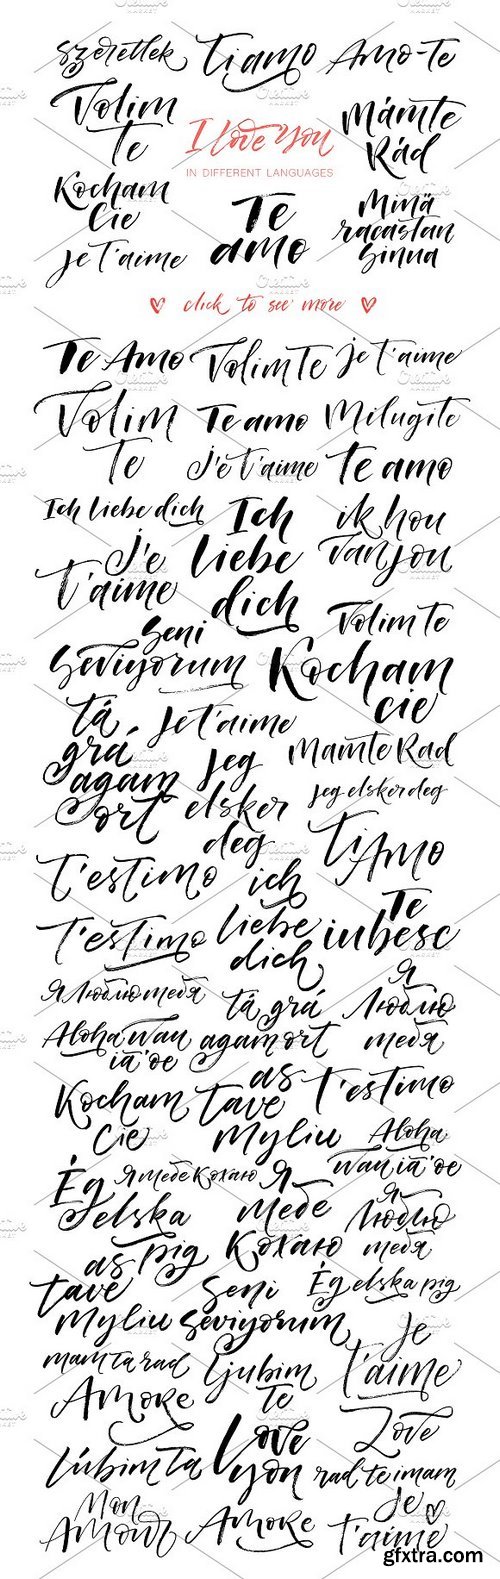 Szeretlek Ti amo Amo-te
Volim te
I love you
IN DIFFERENT LANGUAGES
Mámte Rád
Kocham Cie
Te amo
Minä racastan Sinua
Je T'aime
click to see more
Te Amo Volim Te Je t'aime
Volim Te
Te amo Milugite
J'e t'aime te amo
Ich liebe dich
Ich liebe dich
ik hou van jou
J'e t'aime
Volim te
Seni Seviyorum
Kocham cie
tá grá agam ort
Je t'aime
Jeg elsker deg
Mamte Rad
Jeg elsker deg
Ti Amo
T'estimo
ich liebe dich
Te iubesc
T'estimo
Я Люблю тебя
tá grá agam ort
Я Люблю тебя
Aloha wau iā 'oe
Kocham Cie
as tave myliu
T'estimo
Aloha wau iā 'oe
Ég elska pig
Я тебе Кохаю
Я тебе Кохаю
Я Люблю тебя
as tave myliu
Seni seviyorum
Ég elska pig
Je t'aime
mam ta rad
Ljubim te
Amore
Love you
Love
Lúbim ta
rad te imam
Mon Amour
Amore
Je t'aime
gfxtra.com